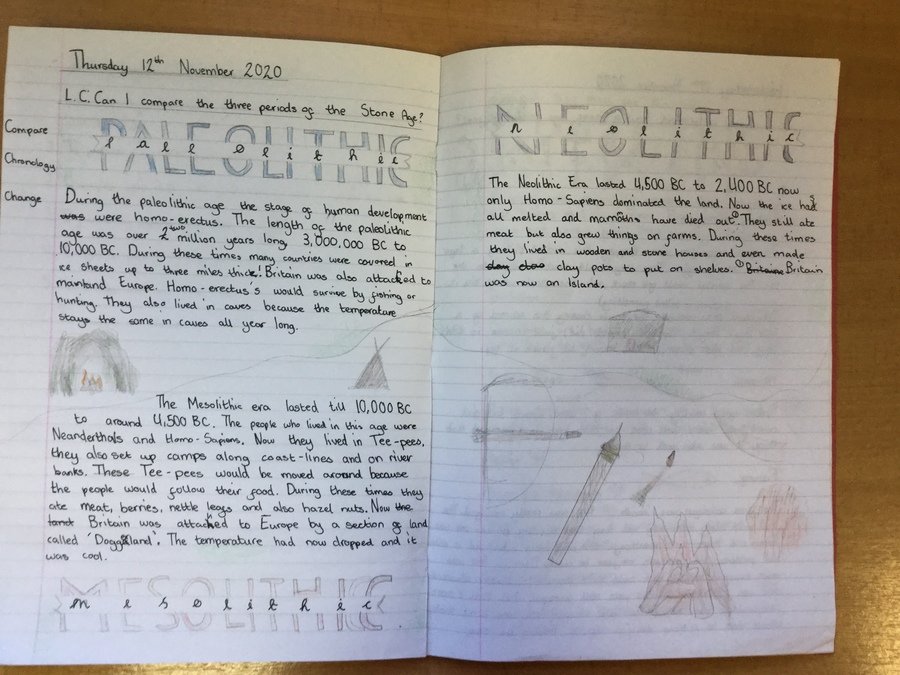 Thursday 12th November 2020
L.C. Can I compare the three periods of the Stone Age?
Compare
Chronology
Change
PALEOLITHIC
During the paleolithic age the stage of human development
was were homo-erectus. The length of the paleolithic
age was over 2 two million years long 3,000,000 BC to
10,000 BC. During these times many countries were covered in
ice sheets up to three miles thick! Britain was also attached to
mainland Europe. Homo-erectus's would survive by fishing or
hunting. They also lived in caves because the temperature
stays the same in caves all year long.
The Mesolithic era lasted till 10,000 BC
to around 4,500 BC. The people who lived in this age were
Neanderthals and Homo-Sapiens. Now they lived in Tee-pees,
they also set up camps along coast-lines and on river
banks. These Tee-pees would be moved around because
the people would follow their food. During these times they
ate meat, berries, nettle leafs and also hazel nuts. Now the
land Britain was attached to Europe by a section of land
called 'Doggerland'. The temperature had now dropped and it
was cool.
MESOLITHIC
mesolithic
NEOLITHIC
neolithic
The Neolithic Era lasted 4,500 BC to 2,400 BC now
only Homo-Sapiens dominated the land. Now the ice had
all melted and mamoths have died out. They still ate
meat but also grew things on farms. During these times
they lived in wooden and stone houses and even made
clay pots to put on shelves. Britain
was now an Island.